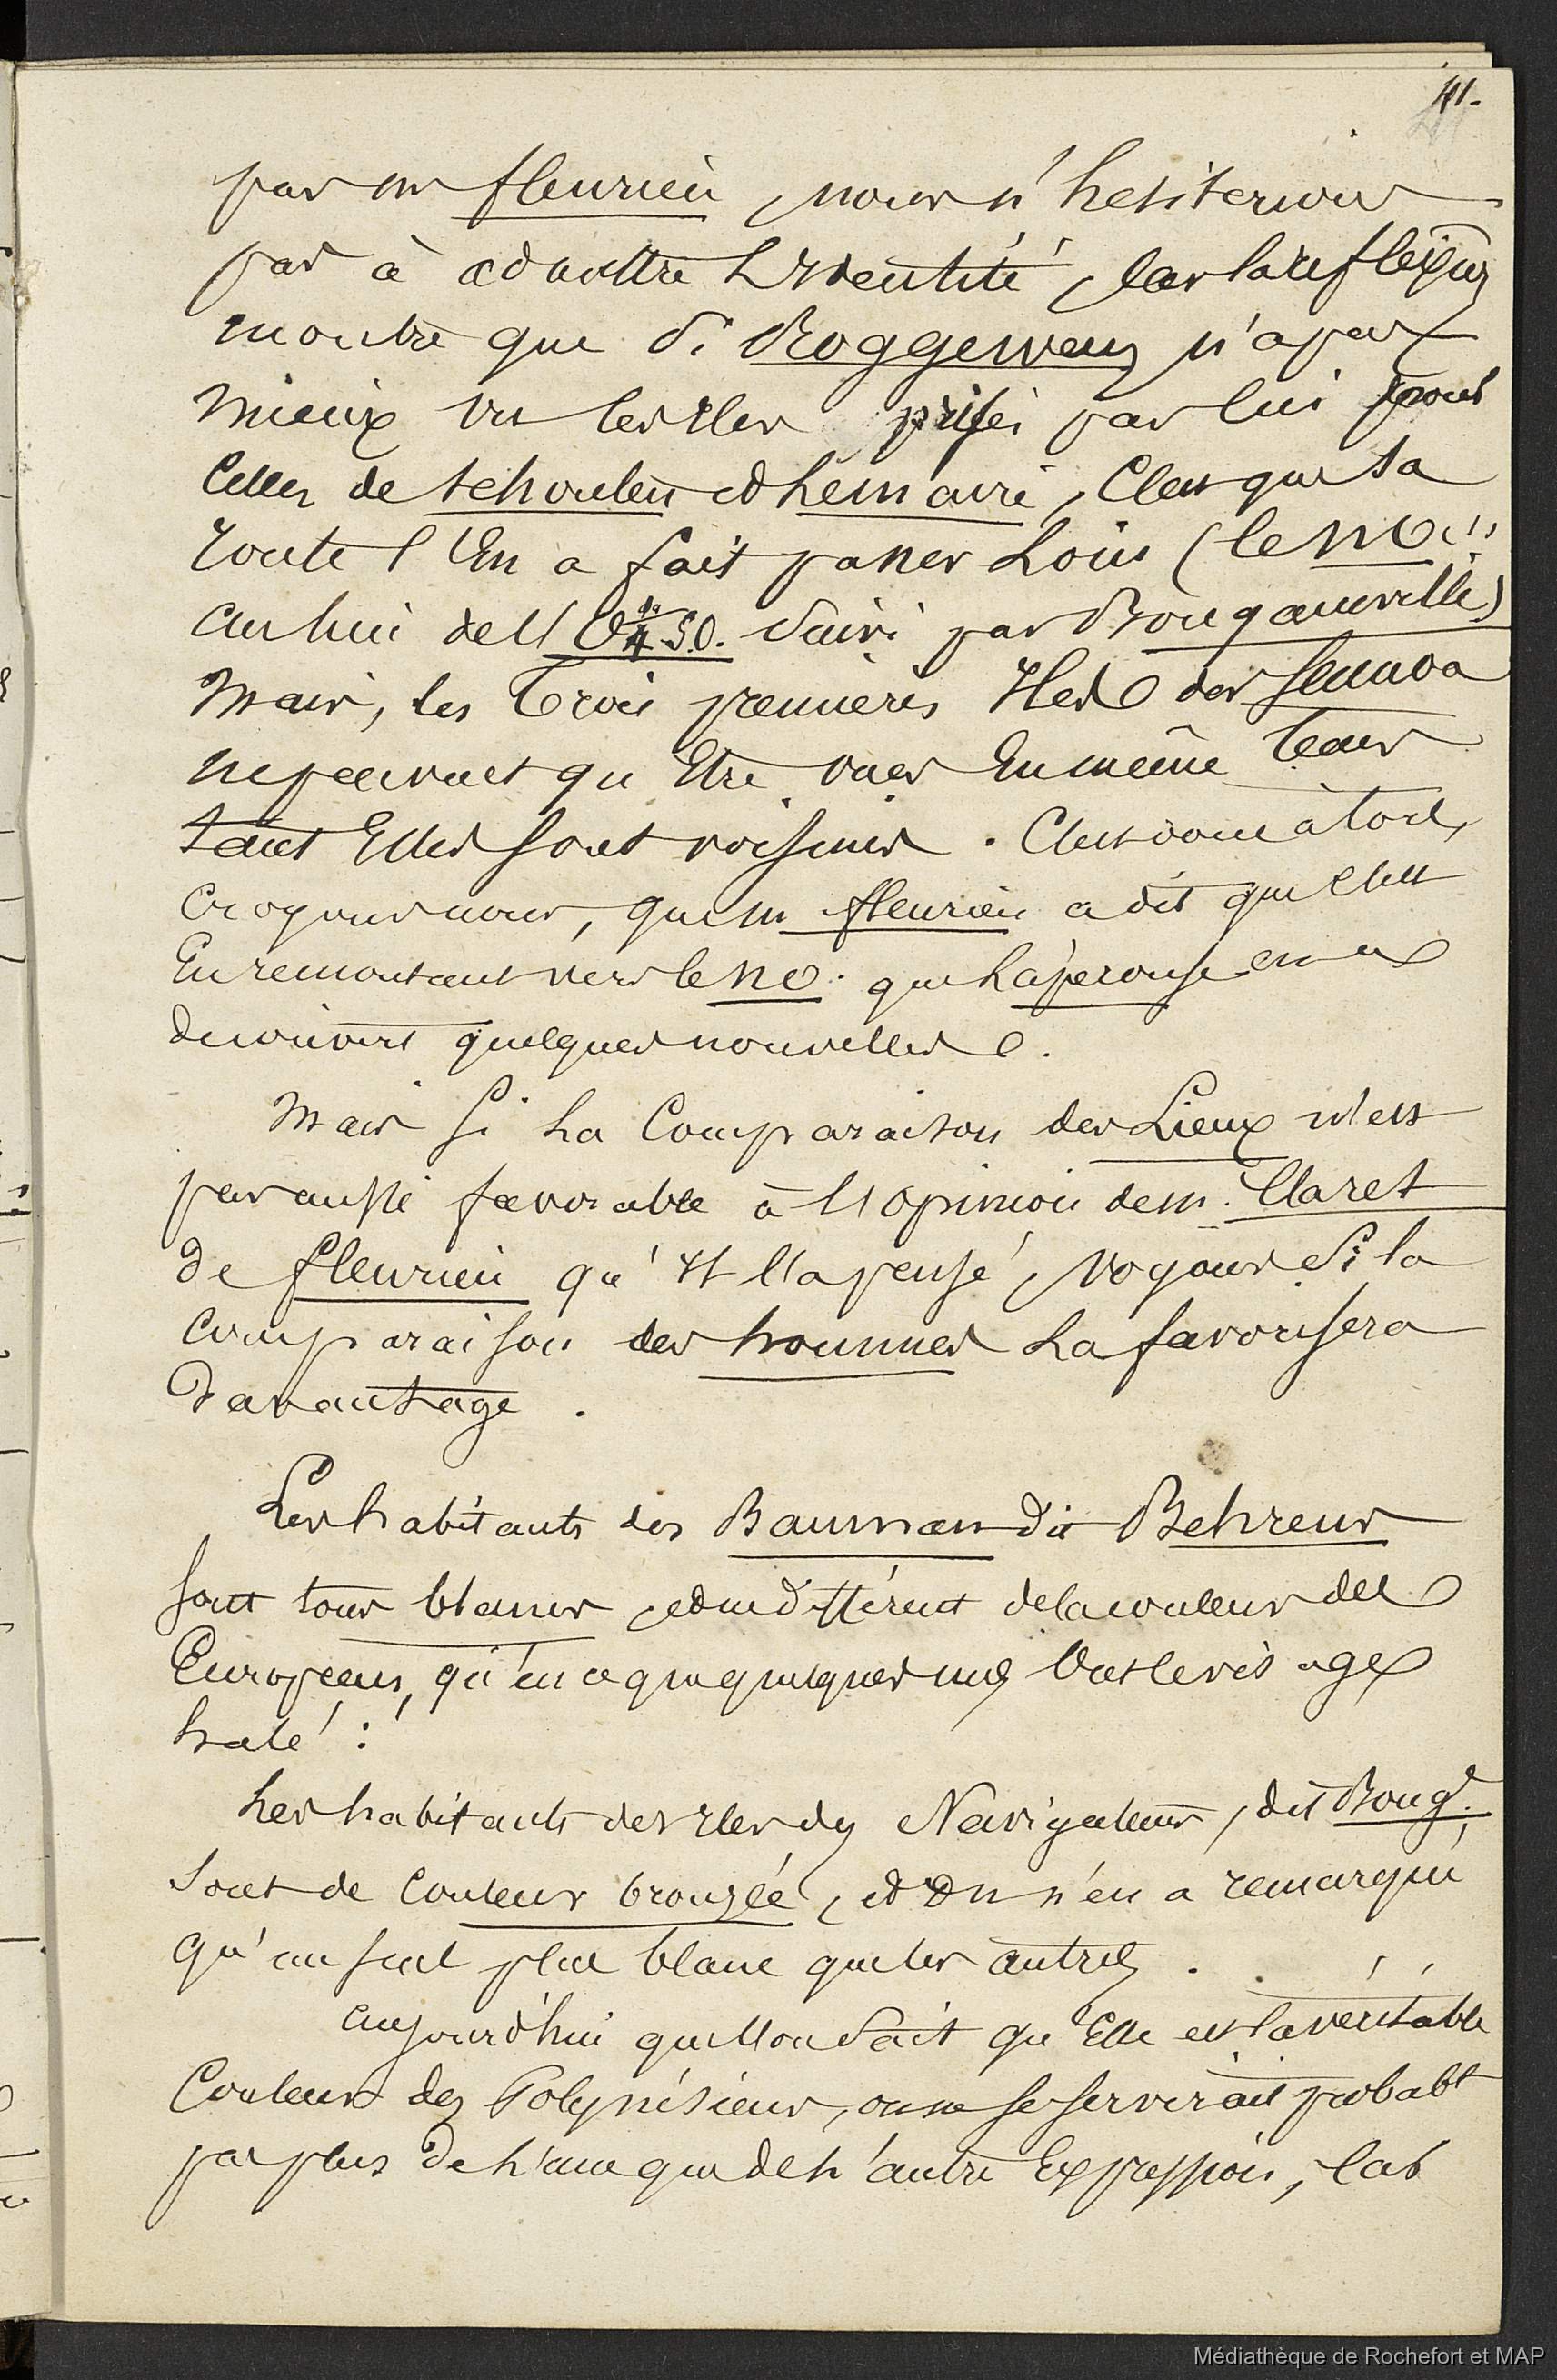 41.
par m fleurieu, nous n'hesiterions
pas à admettre L'Identité, car la reflexion
montre que si Roggeween n'a pas
mieux vu les Iles prises par lui pour
celles de schouten et Lemaire, C'est que sa
route l'En a fait passer Loin (le NO.
au lieu de l'O 1/4 S.O. suivi par Bougainville)
Mais, les Trois premières Iles des Samoa
ne peuvent qu'Etre vues En même tems
tant Elles sont voisines. C'est donc à tort,
croyons nous, que m fleurieu a dit que c'est
En remontant vers le no. que Laperouse en a
decouvert quelques nouvelles.
Mais si La Comparaison des Lieux n'est
pas aussi favorable à l'opinion de m. Claret
de fleurieu qu'Il l'a pensé, voyons si la
comparaison des hommes La favorisera
davantage.
Les habitants des Bauman dit Behrens
sont tous blancs, et ne diffèrent de la couleur des
Européens, qu'en ce que quelques uns ont le visage
halé :
Les habitants des Iles des Navigateurs, dit Boug.
sont de couleur bronzée, et On n'en a remarqué
qu'un seul plus blanc que les autres.
aujourd'hui que l'on sait qu'Elle est la véritable
Couleur des Polynésiens, on ne se servirait probabt
pas plus de L'une que de L'autre Expression, car
Médiathèque de Rochefort et MAP